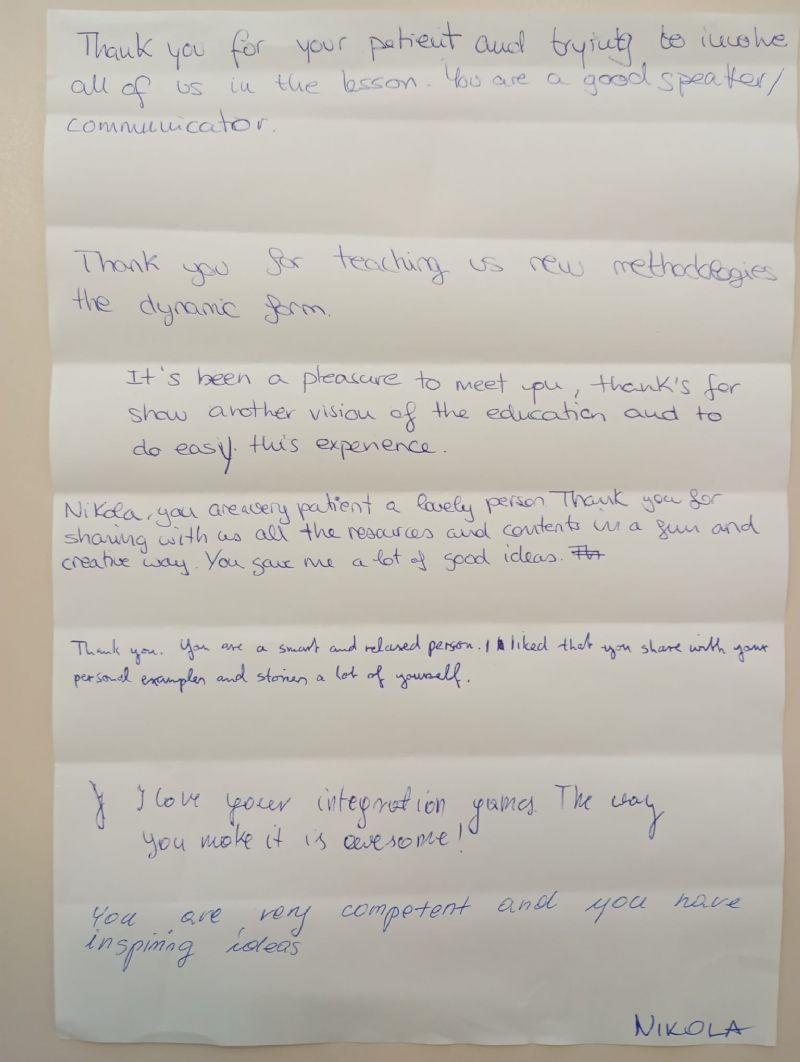 Thank you for your patient and trying to involve
all of us in the lesson. You are a good speaker/
communicator.
Thank you for teaching us new methodologies
the dynamic form.
It's been a pleasure to meet you, thank's for
show another vision of the education and to
do easy this experience.
Nikola, you are very patient a lovely person. Thank you for
sharing with us all the resources and contents in a fun and
creative way. You gave me a lot of good ideas.
Thank you. You are a smart and relaxed person. I liked that you share with your
personal examples and stories a lot of yourself.
I love your integration games. The way
you make it is awesome!
You are very competent and you have
inspiring ideas
NIKOLA